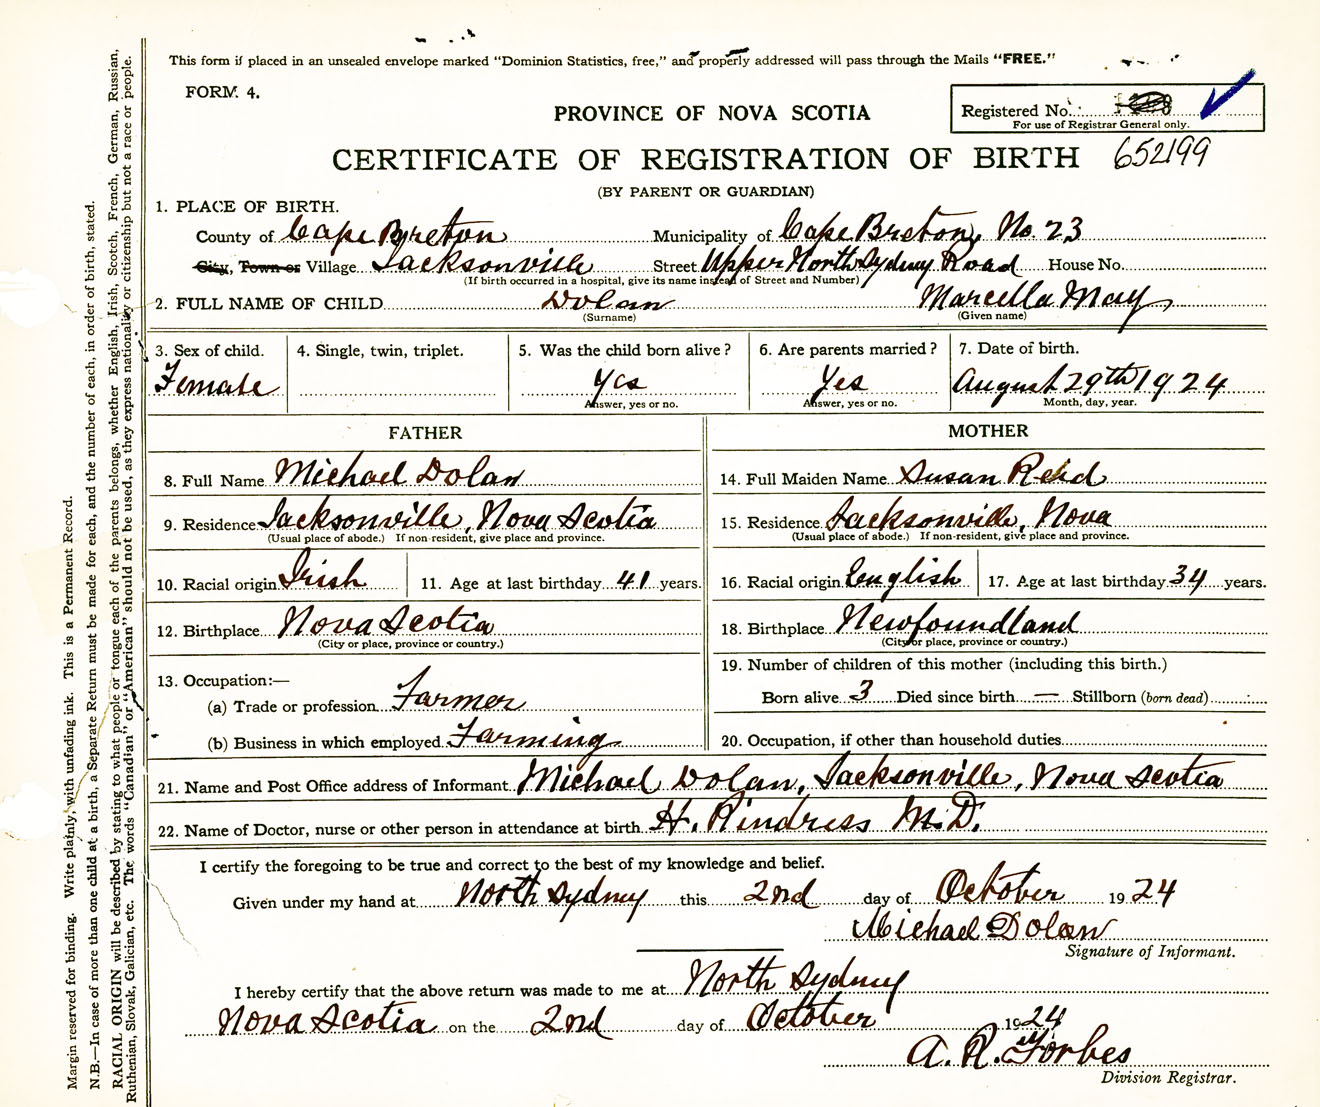 This form if placed in an unsealed envelope marked "Dominion Statistics, free," and properly addressed will pass through the Mails "FREE."
FORM 4.
PROVINCE OF NOVA SCOTIA
Registered No.
For use of Registrar General only.
CERTIFICATE OF REGISTRATION OF BIRTH 652199
(BY PARENT OR GUARDIAN)
1. PLACE OF BIRTH.
County of Cape Breton Municipality of Cape Breton, No. 23
City, Town or Village Jacksonville Street Upper North Sydney Road House No.
(If birth occurred in a hospital, give its name instead of Street and Number)
2. FULL NAME OF CHILD Dolan Marcella May
(Surname) (Given name)
3. Sex of child. 4. Single, twin, triplet. 5. Was the child born alive? 6. Are parents married? 7. Date of birth.
Female Yes Yes August 29th 1924
Answer, yes or no. Answer, yes or no. Month, day, year.
FATHER MOTHER
8. Full Name Michael Dolan 14. Full Maiden Name Susan Reid
9. Residence Jacksonville, Nova Scotia 15. Residence Jacksonville, Nova
(Usual place of abode.) If non-resident, give place and province. (Usual place of abode.) If non-resident, give place and province.
10. Racial origin Irish 11. Age at last birthday 41 years. 16. Racial origin English 17. Age at last birthday 34 years.
12. Birthplace Nova Scotia 18. Birthplace Newfoundland
(City or place, province or country.) (City or place, province or country.)
19. Number of children of this mother (including this birth.)
13. Occupation:—
Born alive 3 Died since birth — Stillborn (born dead)
(a) Trade or profession Farmer
(b) Business in which employed Farming 20. Occupation, if other than household duties
21. Name and Post Office address of Informant Michael Dolan, Jacksonville, Nova Scotia
22. Name of Doctor, nurse or other person in attendance at birth H. Rindress M.D.
I certify the foregoing to be true and correct to the best of my knowledge and belief.
Given under my hand at North Sydney this 2nd day of October 1924
Michael Dolan
Signature of Informant.
I hereby certify that the above return was made to me at North Sydney
Nova Scotia on the 2nd day of October 1924
A. R. Forbes
Division Registrar.
Margin reserved for binding. Write plainly, with unfading ink. This is a Permanent Record.
N.B.—In case of more than one child at a birth, a Separate Return must be made for each, and the number of each, in order of birth, stated.
RACIAL ORIGIN will be described by stating to what people or tongue each of the parents belongs, whether English, Irish, Scotch, French, German, Russian,
Ruthenian, Slovak, Galician, etc. The words "Canadian" or "American" should not be used, as they express nationality or citizenship but not a race or people.